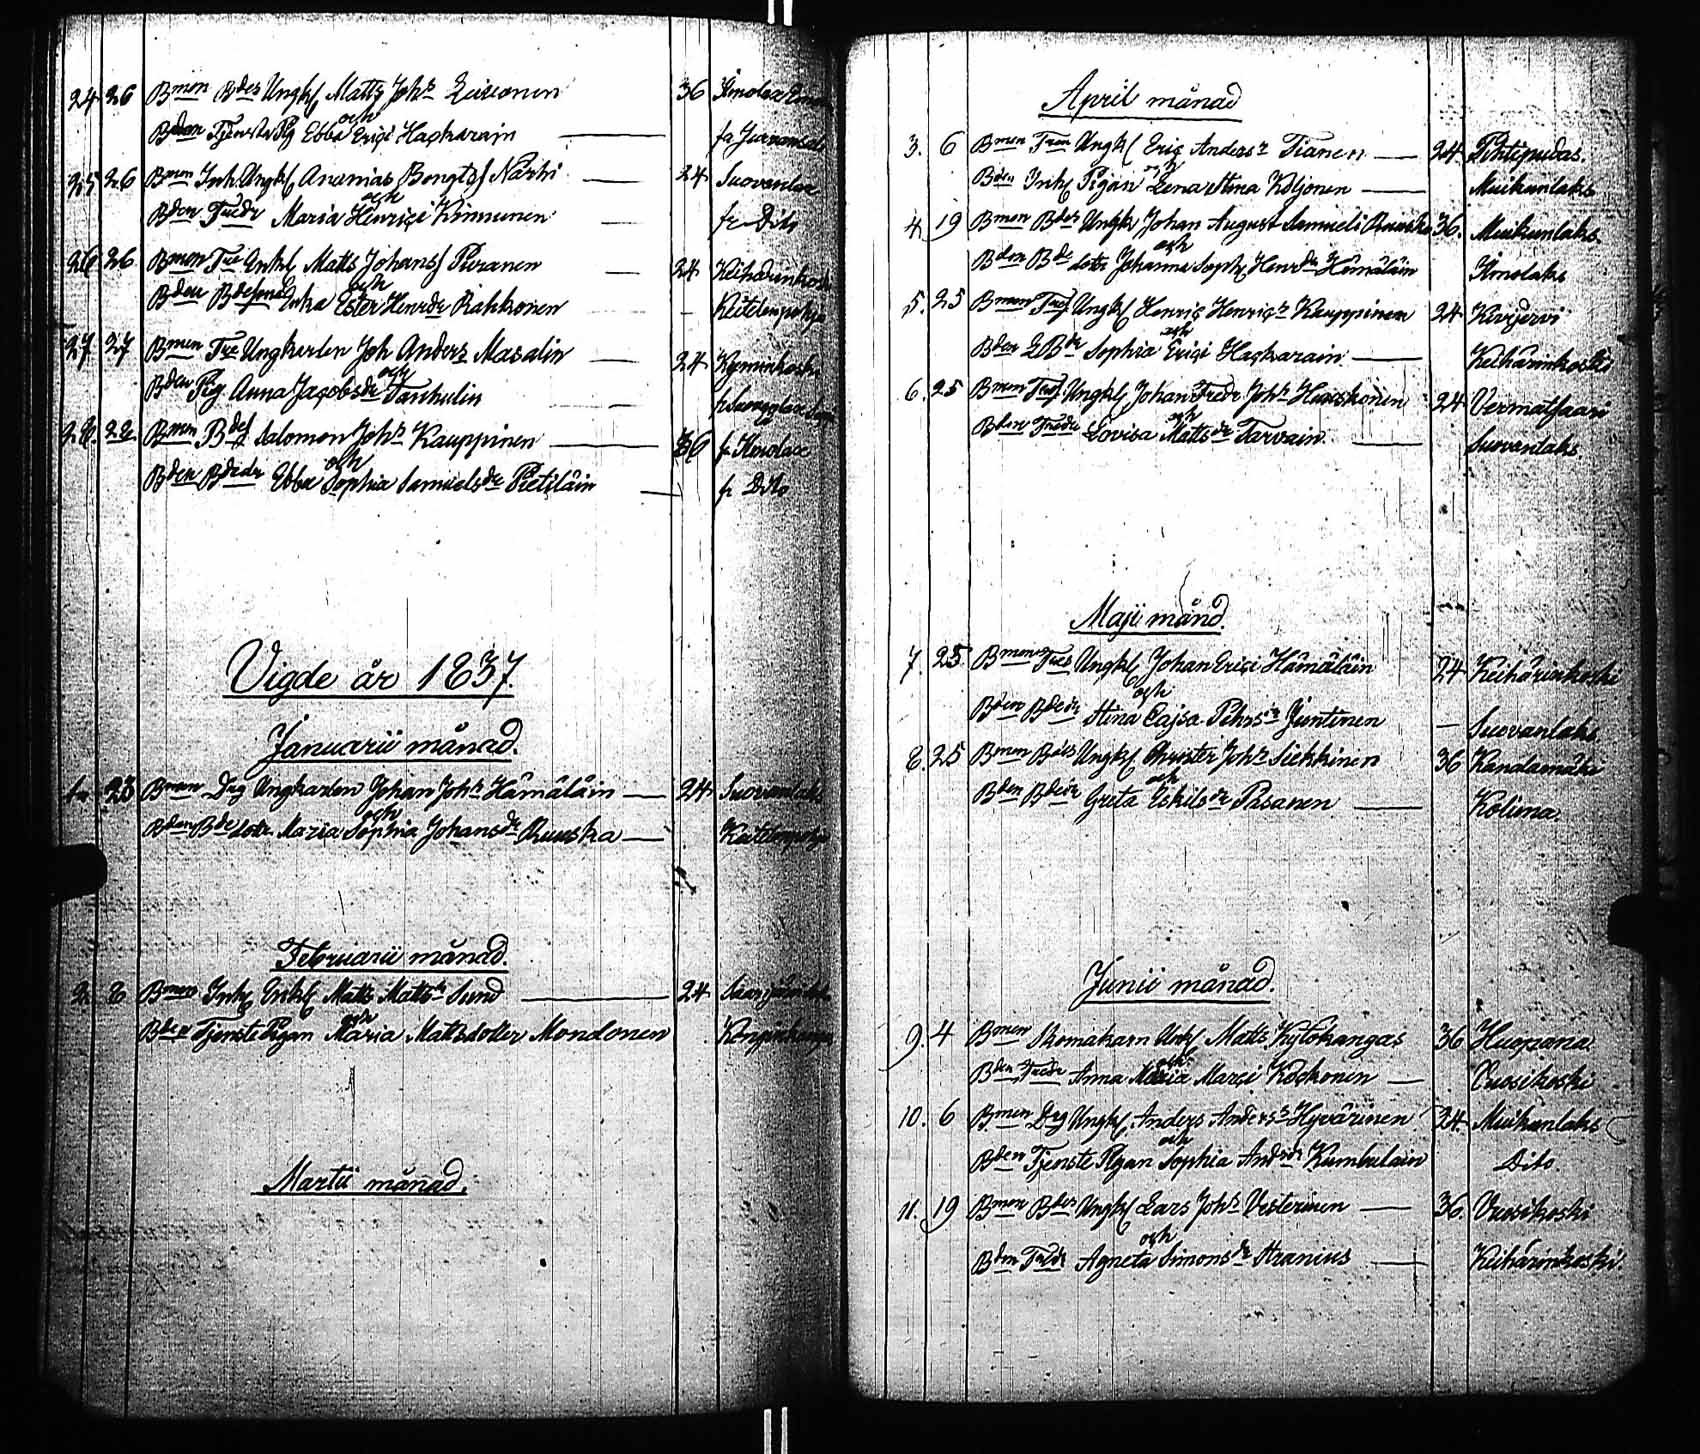 24 26 Bmon Bdes Ungkl Matts Johs 36
och
Bden Tjenste Pig Ebba Erici Hackarain fr
25 26 Bmon Inh Ungkl Ananias Bengts Närhi 24 Suovanlax
och
Bden Tredr Maria Henrici Kinnunen fr Dito
26 26 Bmon Tre Enkl Matts Johans Puranen 24 Keihärinkoski
och
Bden Enka Ester Henrdr Rahkonen Keitelenpohja
27 27 Bmon Tre Ungkarlen Joh Anders Masalin 24 Kyminkoski
och
Bden Pig Anna Jacobsdr Tanhulin fr
28. 28. Bmon Bdes Salomon Johs Kauppinen 36 fr Ilmolax
och
Bden Bdedr Ebba Sophia Samuelsdr Pietiläin fr Dito
Vigde år 1837.
Januarii månad.
1. 23 Bmon Drg Ungkarlen Johan Johs Hämäläin 24 Suovanlaks
och
Bden Bde dotr Maria Sophia Johansdr Ruuska Keitelenpohja
Februarii månad.
2. 8 Bmon Inh Enkl Matts Matts Sund 24
och
Bden Tjenste Pigan Maria Mattsdotter Mondonen Könginkangas
Martii månad.
April månad
3. 6 Bmon Tron Ungkl Eric Anders Tianen 24 Pihtipudas.
och
Bden Inh Pigan Lena Stina Koljonen Muikunlaks
4. 19 Bmon Bdes Ungkl Johan August Samueli Ruuska 36. Muikunlaks
och
Bden Bde doter Johanna Soph Henrdr Hämäläin Ilmolaks
5. 25 Bmon Tres Ungkl Henric Henrics Kauppinen 24 Kivijervi
och
Bden Sophia Erici Hackarain Keihärinkoski
6. 25 Bmon Tres Ungkl Johan Fredr Johs Hauskonen 24 Vermatsaari
och
Bden Tredr Lovisa Mattsdr Tarvain Suovanlaks
Maji månd.
7. 25 Bmon Tres Ungkl Johan Erici Hämäläin 24 Keihärinkoski
och
Bden Bdedr Stina Cajsa Pehrsdr Juntinen Suovanlaks
8. 25 Bmon Bdes Ungkl Christer Johs Siekkinen 36 Kandamäki
och
Bden Bdedr Greta Eskilsdr Pasanen Kolima
Junii månad.
9. 4 Bmon Skomakarn Ungkl Matts Kytökangas 36 Huopana.
och
Bden Tredr Anna Maria Marci Kockonen Vuosikoski
10. 6 Bmon Drg Ungkl Anders Anders Hyvärinen 24 Muikunlaks
och
Bden Tjenste Pigan Sophia Andrdr Kumbulain Dito
11. 19 Bmon Bdes Ungkl Lars Johs Vesterinen 36. Vuosikoski
och
Bden Tredr Agneta Simonsdr Stranius Keihärinkoski.